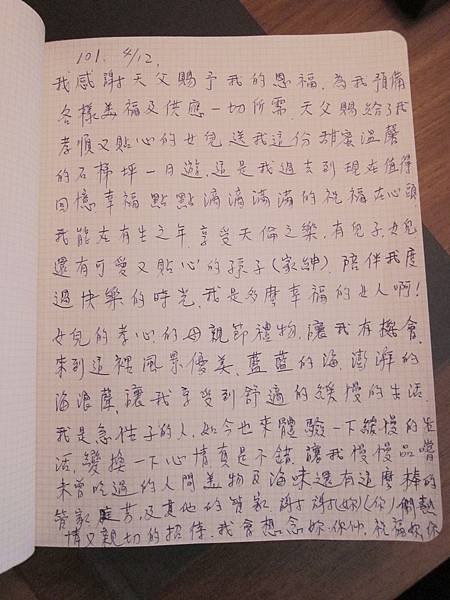 101. 4/12,
我感謝天父賜予我的恩福，為我預備
各樣美福及供應一切所需，天父賜給了我
孝順又貼心的女兒送我這份甜蜜溫馨
的石梯坪一日遊，這是我過去到現在值得
回憶幸福點點滴滴滿滿的祝福在心頭
我能在有生之年，享受天倫之樂，有兒子、女兒
還有可愛又貼心的孫子(家紳)，陪伴我度
過快樂的時光，我是多麼幸福的女人啊！
女兒的孝心的母親節禮物，讓我有機會，
來到這裡風景優美，藍藍的海，澎湃的
海浪聲，讓我享受到舒適的緩慢的生活，
我是急性子的人，如今也來體驗一下緩慢的生
活，變換一下心情真是不錯，讓我慢慢品嚐
未曾吃過的人間美物及海味還有這麼棒的
管家 庭芳，及其他的管家，謝謝妳(你)們熱
情又親切的招待，我會想念妳、你們，祝福妳、你